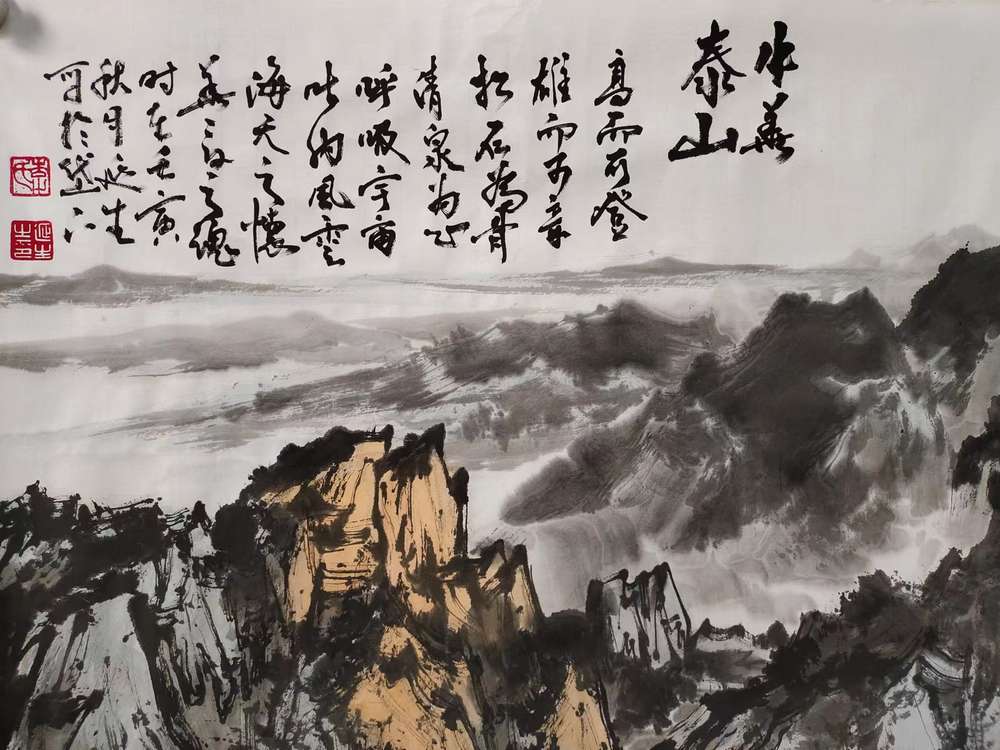 中華
泰山
高而可登
雄而可亲
松石為骨
清泉为心
呼吸宇宙
吐纳風雲
海天之懷
華夏之魂
时在壬寅
秋月延生
写於岱下